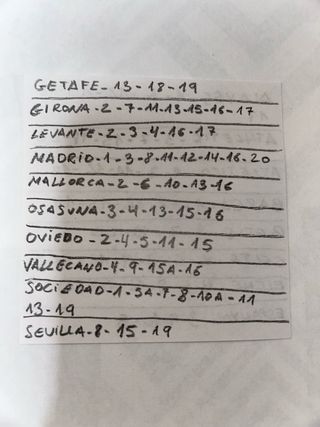 GETAFE-13-18-19
GIRONA-2-7-11-13-15-16-17
LEVANTE-2-3-4-16-17
MADRID-1-3-8-11-12-14-16-20
MALLORCA-2-6-10-13-16
OSASUNA-3-4-13-15-16
OVIEDO-2-4-5-11-15
VALLECANO-4-9-15A-16
SOCIEDAD-1-5A-7-8-10A-11
13-19
SEVILLA-8-15-19